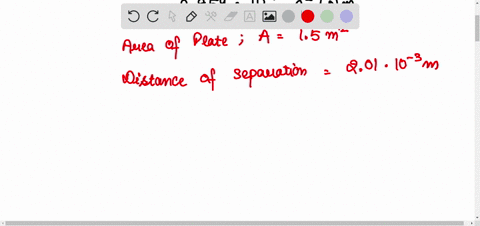 Area of Plate ; A = 1.5 m
Distance of separation = 2.01 · 10⁻³ m